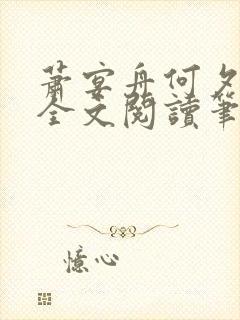 蕭宴舟何夕
全文閱讀筆
憶心